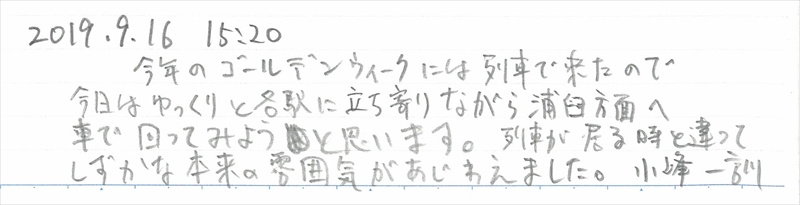 2019.9.16 15:20
今年のゴールデンウィークには列車で来たので
今日はゆっくりと各駅に立ち寄りながら浦臼方面へ
車で回ってみようと思います。列車が居る時と違って
しずかな本来の雰囲気があじわえました。小峰一